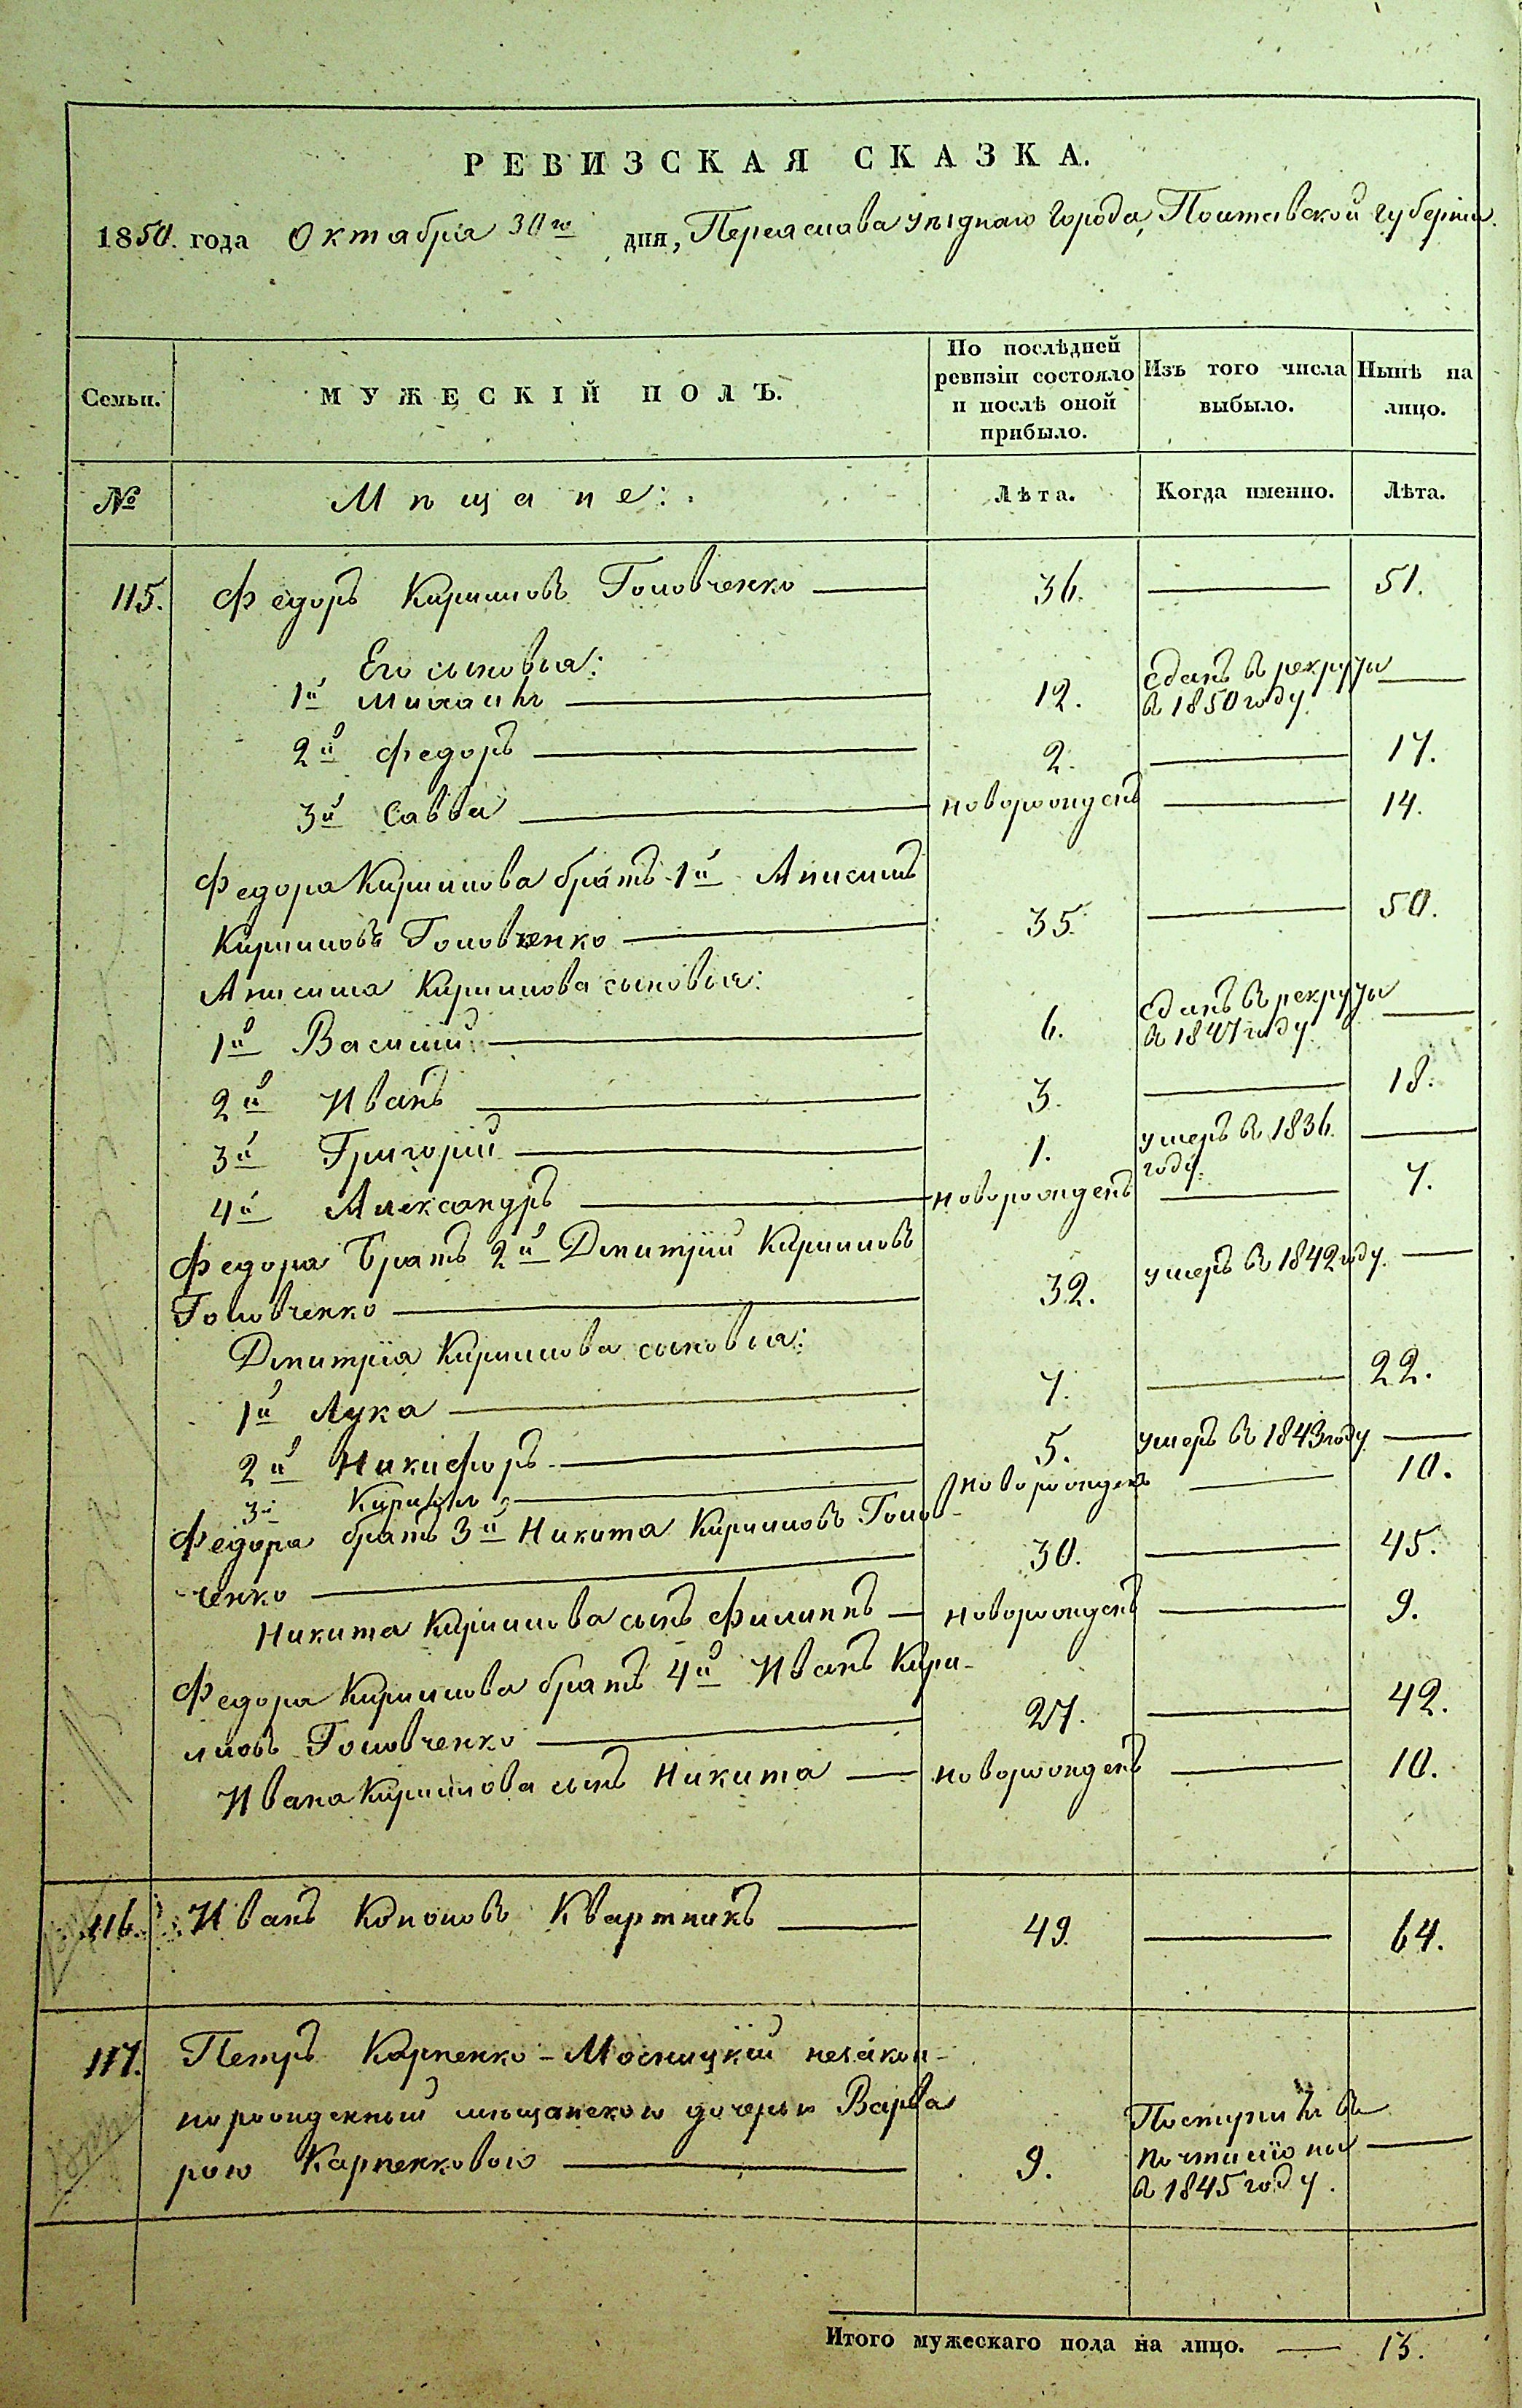 РЕВИЗСКАЯ СКАЗКА.
1850. года Октабріа 30го дня, Переаслава уѣзднаго города, Полтавской губерніи.
Семьи. МУЖЕСКІЙ ПОЛЪ. По послѣдней ревизіи состояло и послѣ оной прибыло. Изъ того числа выбыло. Нынѣ на лицо.
№ Мѣщане: Лѣта. Когда именно. Лѣта.
115. Федоръ Кириловъ Головченко — 36. — 51.
Его сыновьа:
1й Михаилъ — 12. сданъ въ рекруты в 1850 году. —
2й Федоръ — 2. — 17.
3й Савва — новорожденъ — 14.
Федора Кирилова братъ 1й Анисимъ
Кириловъ Головченко — 35. — 50.
Анисима Кирилова сыновьа:
1й Василій — 6. сданъ въ рекруты в 1847 году. —
2й Иванъ — 3. — 18.
3й Григорій — 1. умеръ в 1836. году. —
4й Александръ — новорожденъ — 7.
Федора братъ 2й Дмитрій Кириловъ
Головченко — 32. умеръ в 1842 году. —
Дмитріа Кирилова сыновьа:
1й Лука — 7. — 22.
2й Никифоръ — 5. умеръ в 1843 году —
3й Кирилъ — новорожденъ — 10.
Федора братъ 3й Никита Кириловъ Голов-
ченко — 30. — 45.
Никита Кирилова сынъ Филипъ — новорожденъ — 9.
Федора Кирилова братъ 4й Иванъ Кири-
ловъ Головченко — 27. — 42.
Ивана Кирилова сынъ Никита — новорожденъ — 10.
116. Иванъ Кононовъ Квартникъ — 49. — 64.
117. Петръ Карпенко-Мосницкій незакон-
норожденный мѣщанскою дочерью Варва
рою Карпенковою — 9. Поступилъ в почталіоны в 1845 году. —
Итого мужескаго пола на лицо. — 13.